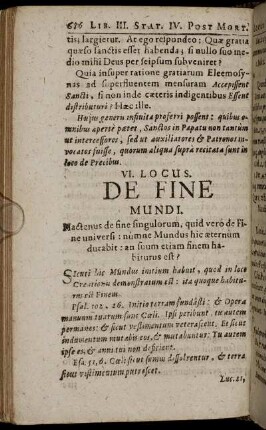 616 LIB. III. STAT. IV. POST MORT.
tis largietur. At ego respondeo: Quæ gratia
quæso sanctis esset habenda, si nullo suo me-
dio mihi Deus per seipsum subveniret?
Quia insuper ratione gratiarum Eleemosy-
nas ad superfluentem mensuram Accepissent
Sancti, si non inde cæteris indigentibus Essent
distributuri? Hæc ille.
Hujus generis infinita proferri possent: quibus o-
mnibus apertè patet, Sanctos in Papatu non tantùm
ut intercessores, sed ut auxiliatores & Patronos in-
vocatos fuisse, quorum aliqua supra recitata sunt in
loco de Precibus.
VI. LOCUS.
DE FINE
MUNDI.
Hactenus de fine singulorum, quid vero de Fi-
ne universi: númne Mundus hic æternùm
durabit: an suum etiam finem ha-
biturus est?
Sicuti hic Mundus initium habuit, quod in loco
Creationis demonstratum est: ita quoque habitu-
rus est Finem.
Psal. 102, 26. Initio terram fundâsti: & Opera
manuum tuarum sunt Cœli. Ipsi peribunt, tu autem
permanes: & sicut vestimentum veterascent. Et sicut
indumentum mutabis eos, & mutabuntur: Tu autem
ipse es, & anni tui non deficient.
Esa. 51, 6. Cœli sicut fumus dissolventur, & terra
sicut vestimentum putrescet.
Luc. 21,